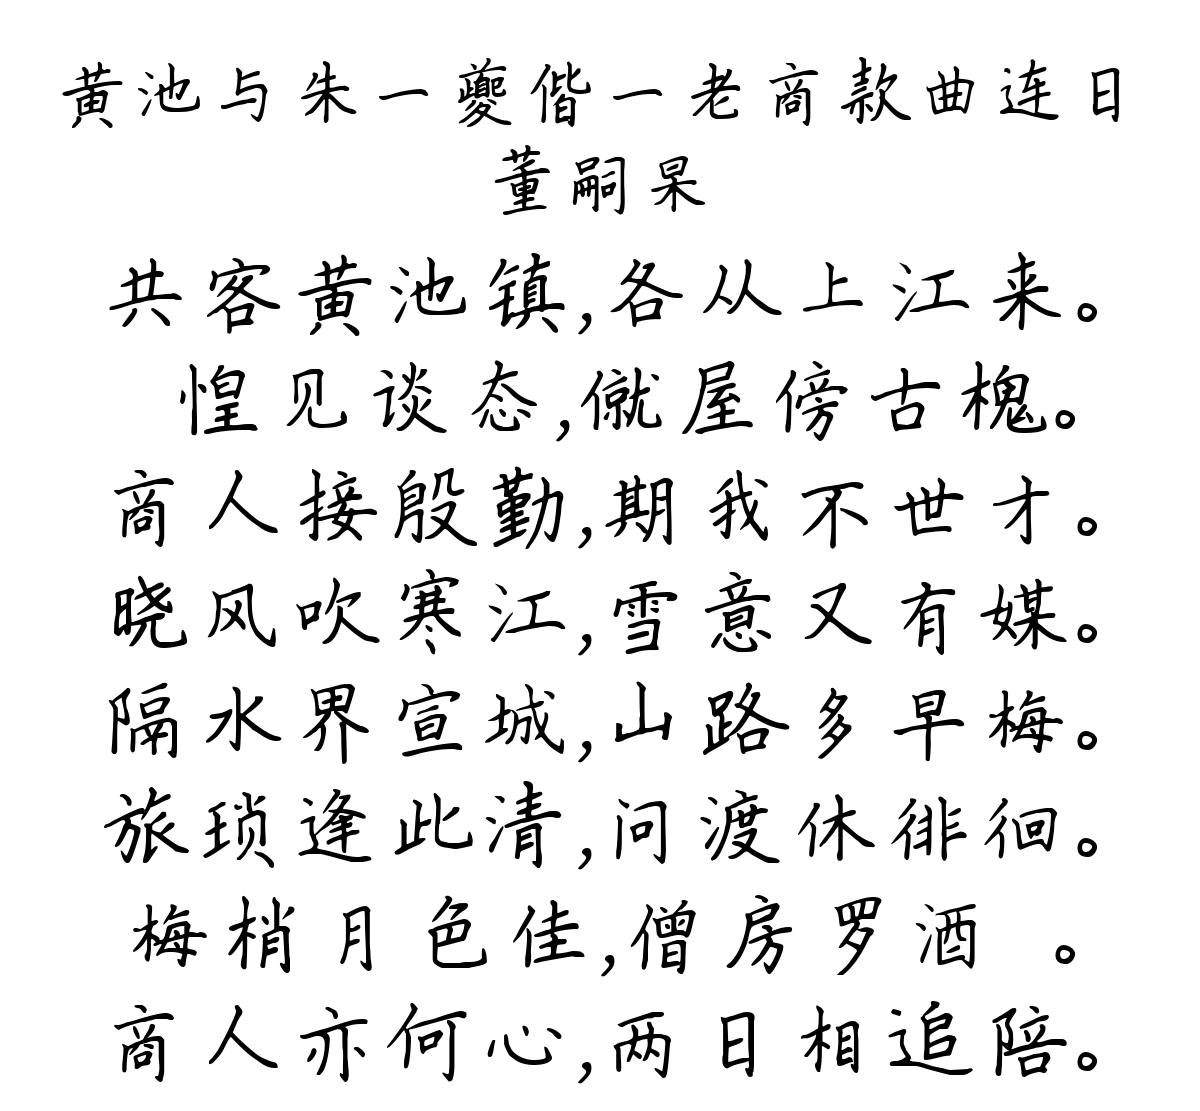 黄池与朱一夔偕一老商款曲连日
董嗣杲
共客黄池镇,各从上江来。
惶见谈态,僦屋傍古槐。
商人接殷勤,期我不世才。
晓风吹寒江,雪意又有媒。
隔水界宣城,山路多早梅。
旅琐逢此清,问渡休徘徊。
梅梢月色佳,僧房罗酒 。
商人亦何心,两日相追陪。